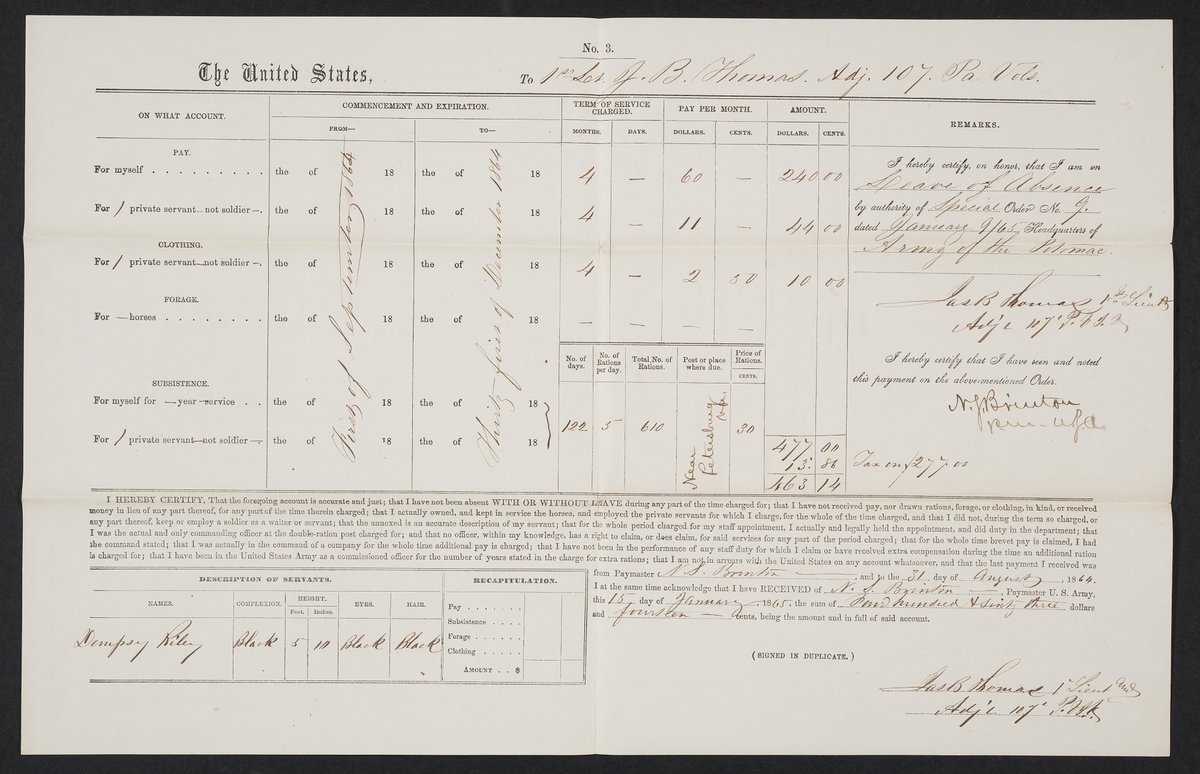 No. 3.
The United States, To 1st Lt. J. B. Thomas. Adj. 107. Pa. Vols.
ON WHAT ACCOUNT. COMMENCEMENT AND EXPIRATION. TERM OF SERVICE CHARGED. PAY PER MONTH. AMOUNT. REMARKS.
FROM— TO— MONTHS. DAYS. DOLLARS. CENTS. DOLLARS. CENTS.
First of September 1864
Thirty first of December 1864
PAY.
For myself . . . . . . . . . . the of 18 the of 18 4 — 60 — 240 00
For 1 private servant—not soldier—. the of 18 the of 18 4 — 11 — 44 00
CLOTHING.
For 1 private servant—not soldier—. the of 18 the of 18 4 — 2 50 10 00
FORAGE.
For — horses . . . . . . . . the of 18 the of 18 — — — —
No. of days. No. of Rations per day. Total No. of Rations. Post or place where due. Price of Rations.
CENTS.
SUBSISTENCE.
For myself for — year service . . the of 18 the of 18
For 1 private servant—not soldier—. the of 18 the of 18 122 5 610 Near Petersburg Va. 30
477 00
13. 86
463 14
I hereby certify, on honor, that I am on
Leave of Absence
by authority of Special Order No. 9.
dated January 9/65 Headquarters of
Army of the Potomac.
Jas B Thomas 1st Lieut
Adj't 107'
I hereby certify that I have seen and noted
this payment on the above-mentioned Order.
N. S. Brinton
Tax on $277.00
I HEREBY CERTIFY, That the foregoing account is accurate and just; that I have not been absent WITH OR WITHOUT LEAVE during any part of the time charged for; that I have not received pay, nor drawn rations, forage, or clothing, in kind, or received
money in lieu of any part thereof, for any part of the time therein charged; that I actually owned, and kept in service the horses, and employed the private servants for which I charge, for the whole of the time charged, and that I did not, during the term so charged, or
any part thereof, keep or employ a soldier as a waiter or servant; that the annexed is an accurate description of my servant; that for the whole period charged for my staff appointment, I actually and legally held the appointment, and did duty in the department; that
I was the actual and only commanding officer at the double-ration post charged for; and that no officer, within my knowledge, has a right to claim, or does claim, for said services for any part of the period charged; that for the whole time brevet pay is claimed, I had
the command stated; that I was actually in the command of a company for the whole time additional pay is charged; that I have not been in the performance of any staff duty for which I claim or have received extra compensation during the time an additional ration
is charged for; that I have been in the United States Army as a commissioned officer for the number of years stated in the charge for extra rations; that I am not in arrears with the United States on any account whatsoever, and that the last payment I received was
from Paymaster N. S. Brinton — , and to the 31 day of August , 1864.
I at the same time acknowledge that I have RECEIVED of N. S. Brinton — , Paymaster U. S. Army,
this 15 day of January , 1865, the sum of Four hundred & sixty three dollars
and fourteen — cents, being the amount and in full of said account.
DESCRIPTION OF SERVANTS.
NAMES. COMPLEXION. HEIGHT. EYES. HAIR.
Feet. Inches.
Dempsey Riley Black 5 10 Black Black
RECAPITULATION.
Pay . . . . .
Subsistence . . . .
Forage . . . . .
Clothing . . . . .
AMOUNT . . $
(SIGNED IN DUPLICATE.)
Jas B Thomas 1st Lieut and
Adj't 107'